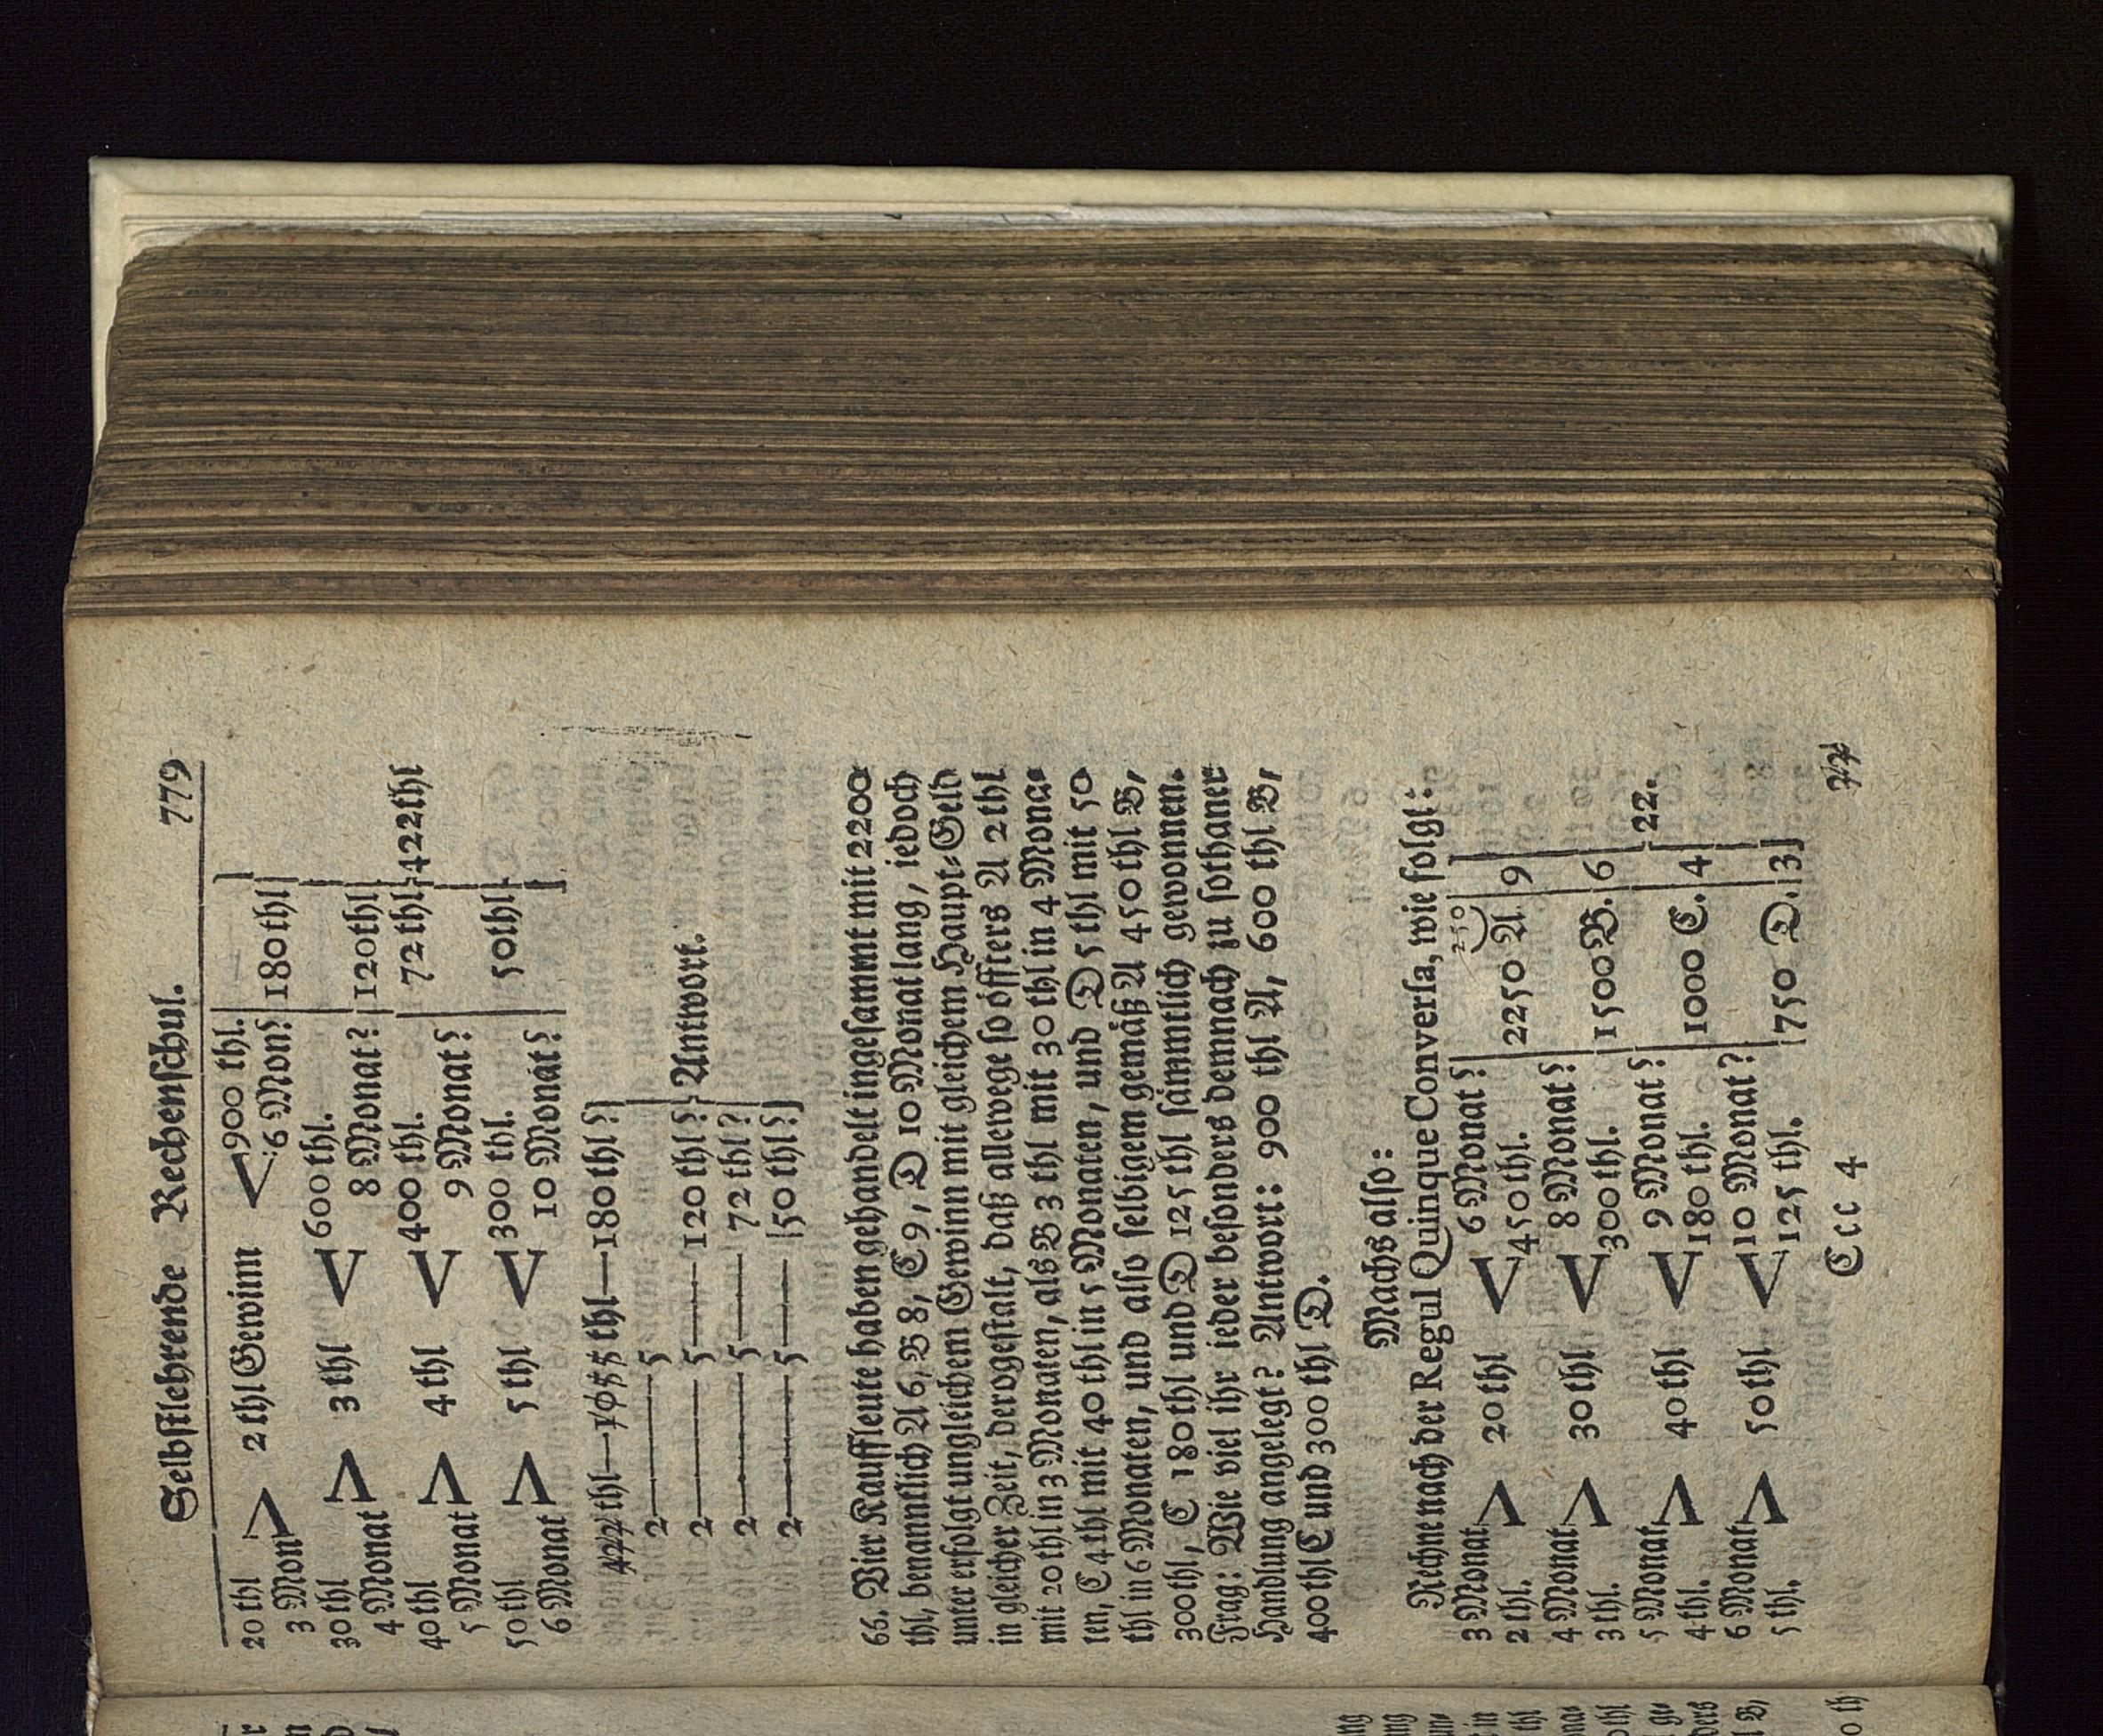 Selbstlehrende Rechenschul. 779
20 thl > 2 thl Gewinn < 900 thl.
3 Mon 6 Mon? 180 thl
30 thl Λ 3 thl V 600 thl.
4 Monat 8 Monat? 120 thl
40 thl Λ 4 thl V 400 thl. 72 thl 422 thl
5 Monat 9 Monat?
50 thl Λ 5 thl V 300 thl. 50 thl
6 Monat 10 Monat?
422 thl—1055 thl—180 thl?
2——5
2——5——120 thl? Antwort.
2——5——72 thl?
2——5——50 thl?
66. Vier Kauffleute haben gehandelt ingesammt mit 2200
thl, benanntlich A 6, B 8, C 9, D 10 Monat lang, iedoch
unter erfolgt ungleichem Gewinn mit gleichem Haupt-Geld
in gleicher Zeit, derogestalt, daß allewege so öffters A 2 thl
mit 20 thl in 3 Monaten, als B 3 thl mit 30 thl in 4 Mona-
ten, C 4 thl mit 40 thl in 5 Monaten, und D 5 thl mit 50
thl in 6 Monaten, und also selbigem gemäß A 450 thl B,
300 thl, C 180 thl und D 125 thl sämmtlich gewonnen.
Frag: Wie viel ihr ieder besonders demnach zu sothaner
Handlung angelegt? Antwort: 900 thl A, 600 thl B,
400 thl C und 300 thl D.
Machs also:
Rechne nach der Regul Quinque Conversa, wie folgt:
3 Monat Λ 20 thl V 6 Monat? 250
2 thl. 450 thl. 2250 A 9
4 Monat Λ 30 thl V 8 Monat?
3 thl. 300 thl. 1500 B. 6
5 Monat Λ 40 thl V 9 Monat? 22.
4 thl. 180 thl. 1000 C. 4
6 Monat Λ 50 thl V 10 Monat?
5 thl. 125 thl. 750 D. 3
Ccc 4 22